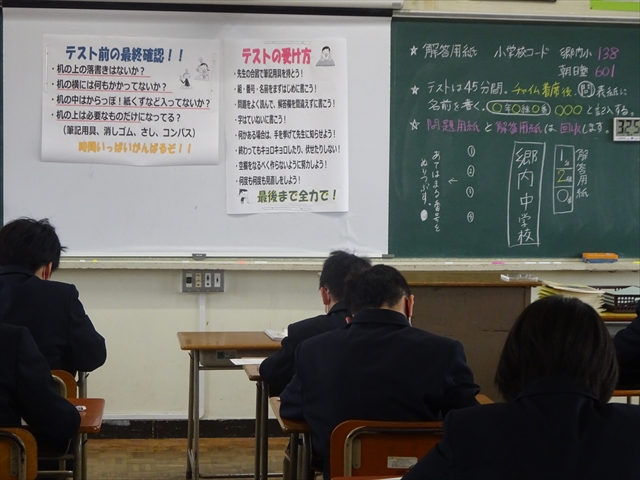 テスト前の最終確認！！
・机の上の落書きはないか？
・机の横には何もかかってないか？
・机の中はからっぽ！紙くずなど入ってないか？
・机の上は必要なものだけになってる？
（筆記用具、消しゴム、さし、コンパス）
時間いっぱいがんばるぞ！！
テストの受け方
・先生の合図で筆記用具を持とう！
・組・番号・名前をまずはじめに書こう！
・問題をよく読んで、解答欄を間違えずに書こう！
・字はていねいに書こう！
・何かある場合は、手を挙げて先生に知らせよう！
・終わってもキョロキョロしたり、伏せたりしない！
・空欄をなるべく作らないように努力しよう！
・何度も何度も見直しをしよう！
最後まで全力で！
★ 解答用紙 小学校コード 郷内小 138
601
★ テストは45分間。チャイム着席後、問表紙に
名前を書く。 ○○○と記入する。
★ 問題用紙と解答用紙は回収します。
325
解答用紙
郷内中学校
① ② ③ ④
あてはまる番号を
ぬりつぶす。